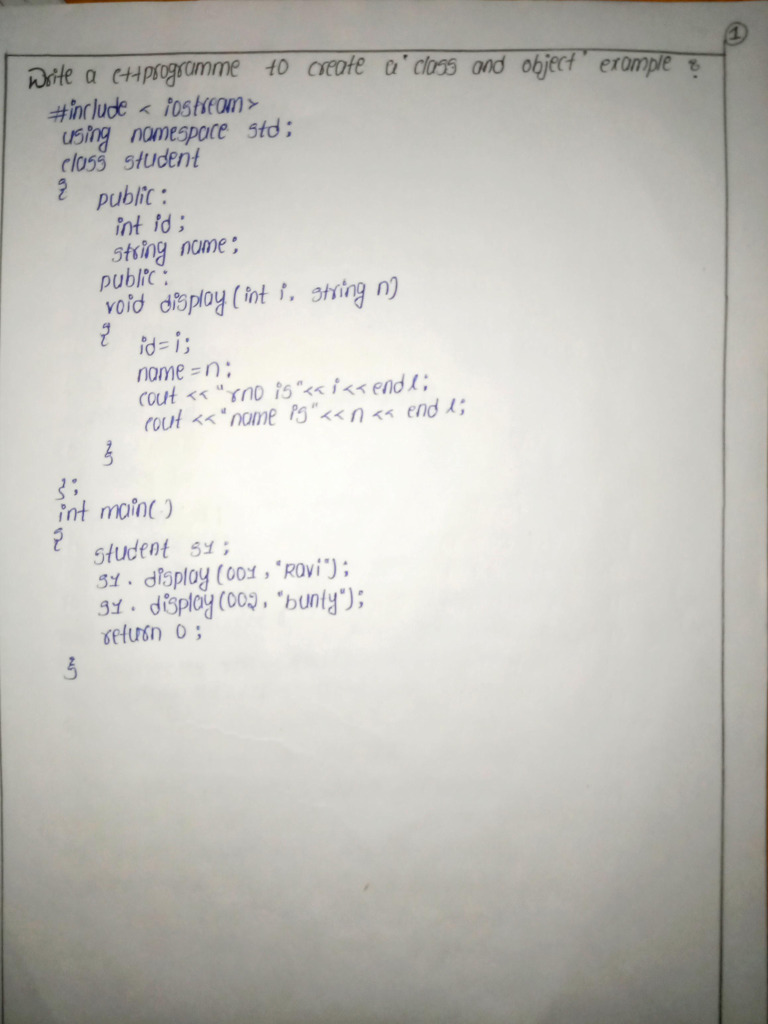 1
Write a c++programme to create a "class and object" example ?
#include < iostream>
using namespace std;
class student
{
public:
int id;
string name;
public:
void display(int i, string n)
{
id=i;
name=n;
cout <<"rno is"<<i<<endl;
cout <<"name is"<<n<< endl;
}
};
int main()
{
student s1;
s1. display(001,"Ravi");
s1. display(002,"bunty");
return 0;
}